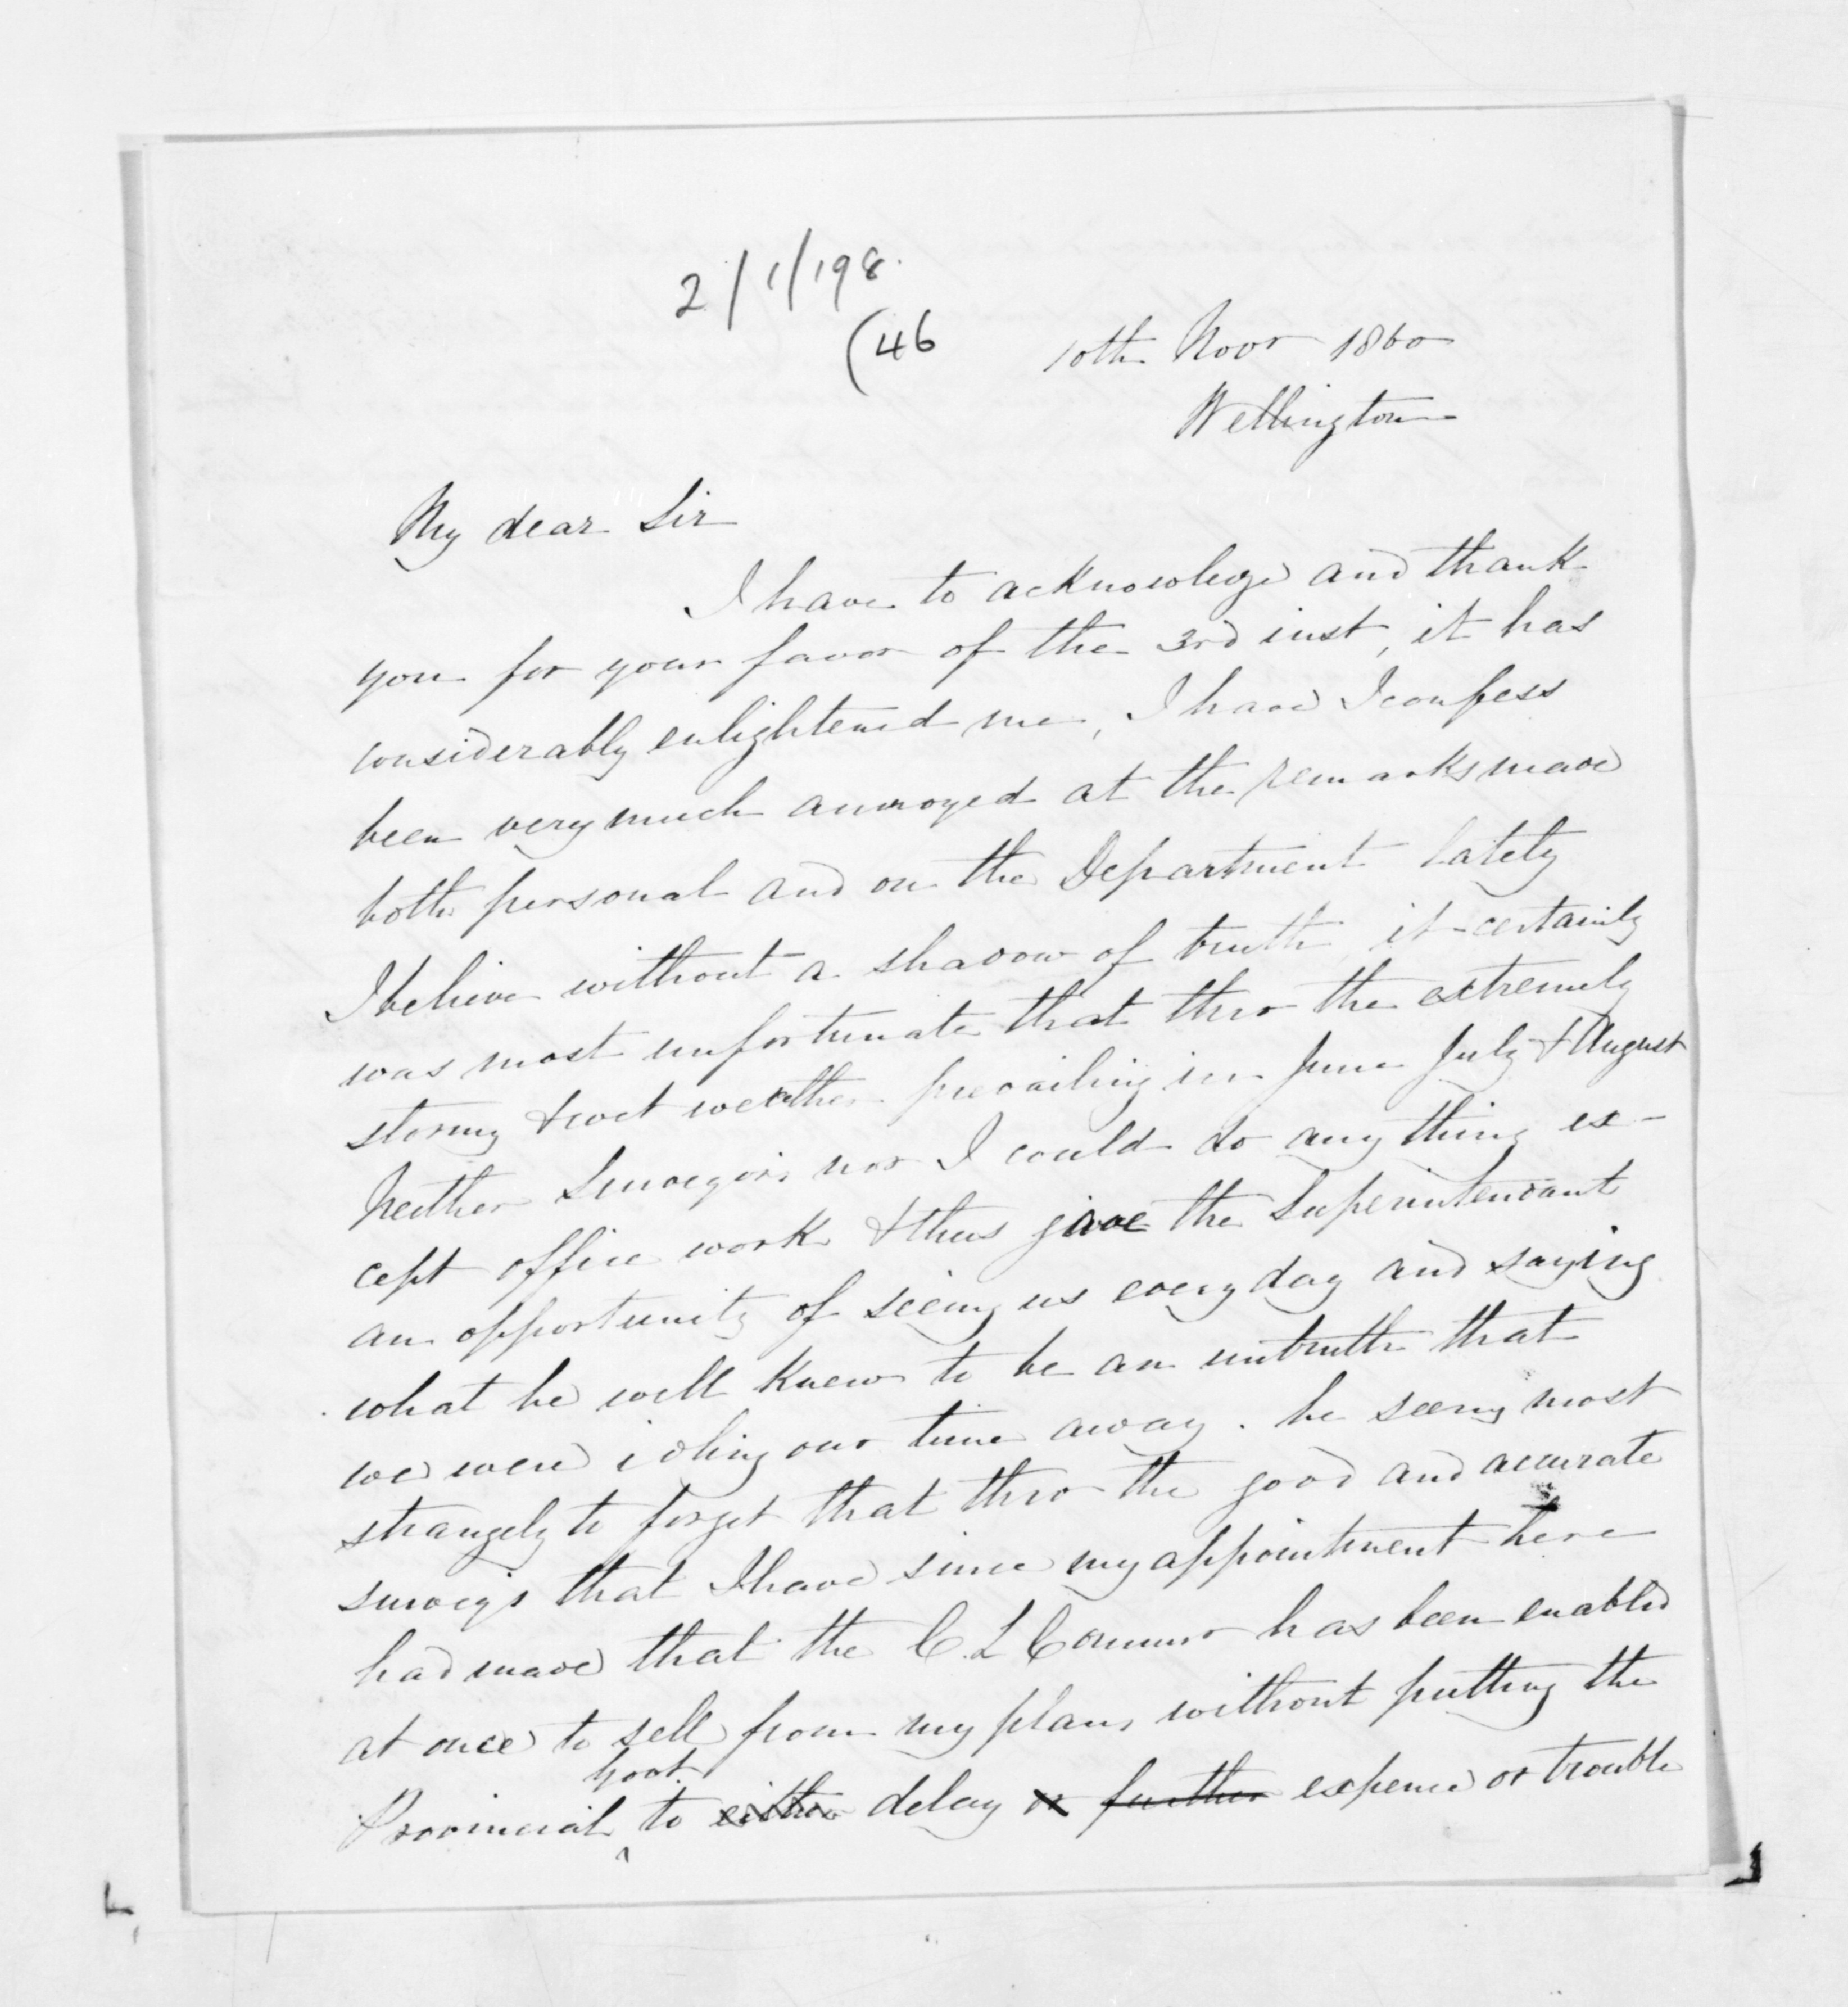 2/1/198.
(46
10th Novr 1860
Wellington
My dear Sir
I have to acknowledge and thank
you for your favor of the 3rd inst, it has
considerably enlightened me, I have I confess
been very much annoyed at the remarks made
both personal and on the Department lately
I believe without a shadow of truth, it certainly
was most unfortunate that thro the extremely
stormy & wet weather prevailing in June July & August
Neither Surveyors nor I could do any thing ex-
cept office work & thus gave the Superintendant
an opportunity of seeing us every day and saying
what he well knew to be an untruth that
we were idling our time away. he seems most
strangely to forget that thro the good and accurate
surveys that I have since my appointment here
had made that the C. L Commr has been enabled
at once to sell from my plans without putting the
Provincial Govt. to either delay or further expence or trouble